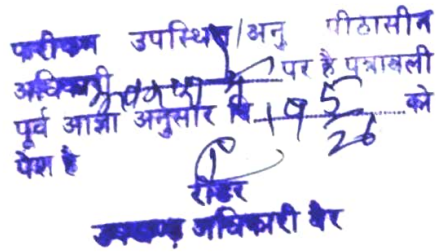 फरीकन उपस्थित/अनु पीठासीन
अधिकारी अवकाश पर है पत्रावली
पूर्व आज्ञा अनुसार दि 19/5/26 को
पेश है
रीडर
उपखण्ड अधिकारी वैर